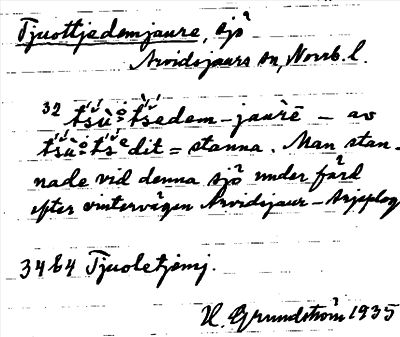 Tjuottjedemjaure, sjö
Arvidsjaurs sn, Norrb. l.
32 tśu̇ȯtśedem-jaùrē – av
tśu̇ȯtśedit = stanna. Man stan-
nade vid denna sjö under färd
efter vintervägen Arvidsjaur – Arjeplog
34 E4 Tjuoletjemj.
H. Grundström 1935